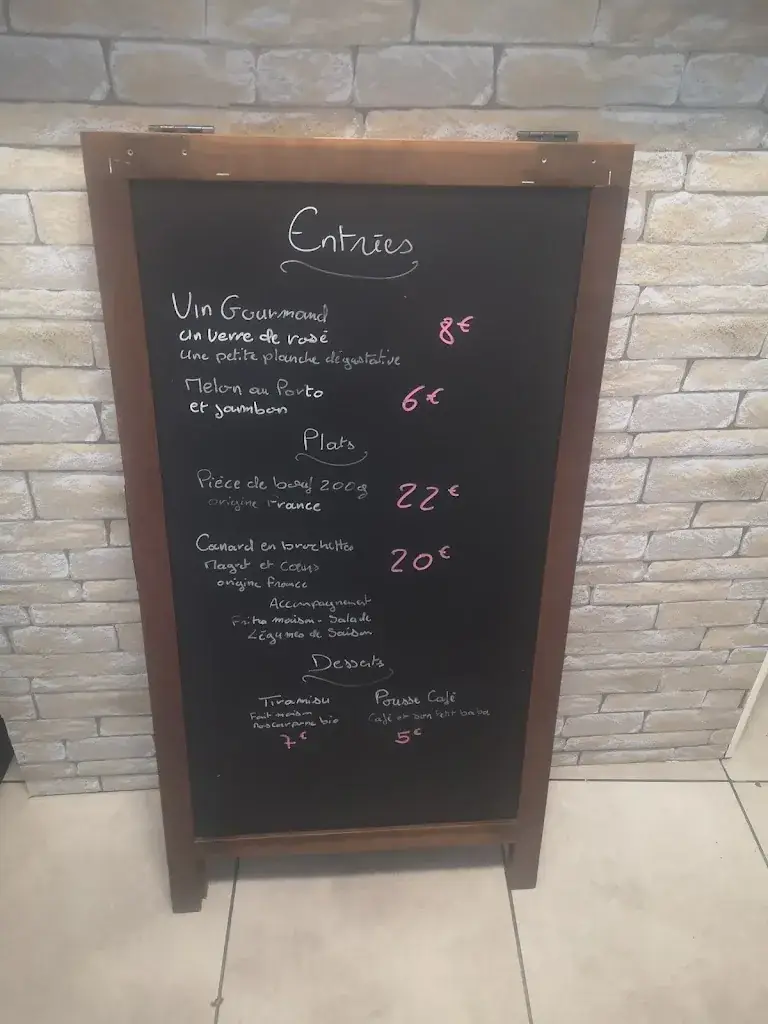 Entrées
Vin Gourmand
un verre de rosé 8€
une petite planche dégustative
Melon au Porto 6€
et jambon
Plats
Pièce de bœuf 200g 22€
origine France
Canard en brochettes 20€
Magret et Cœurs
origine France
Accompagnement
Frites maison - Salade
Légumes de Saison
Desserts
Tiramisu Pousse Café
Fait maison Café et son petit baba
Mascarpone bio
7€ 5€